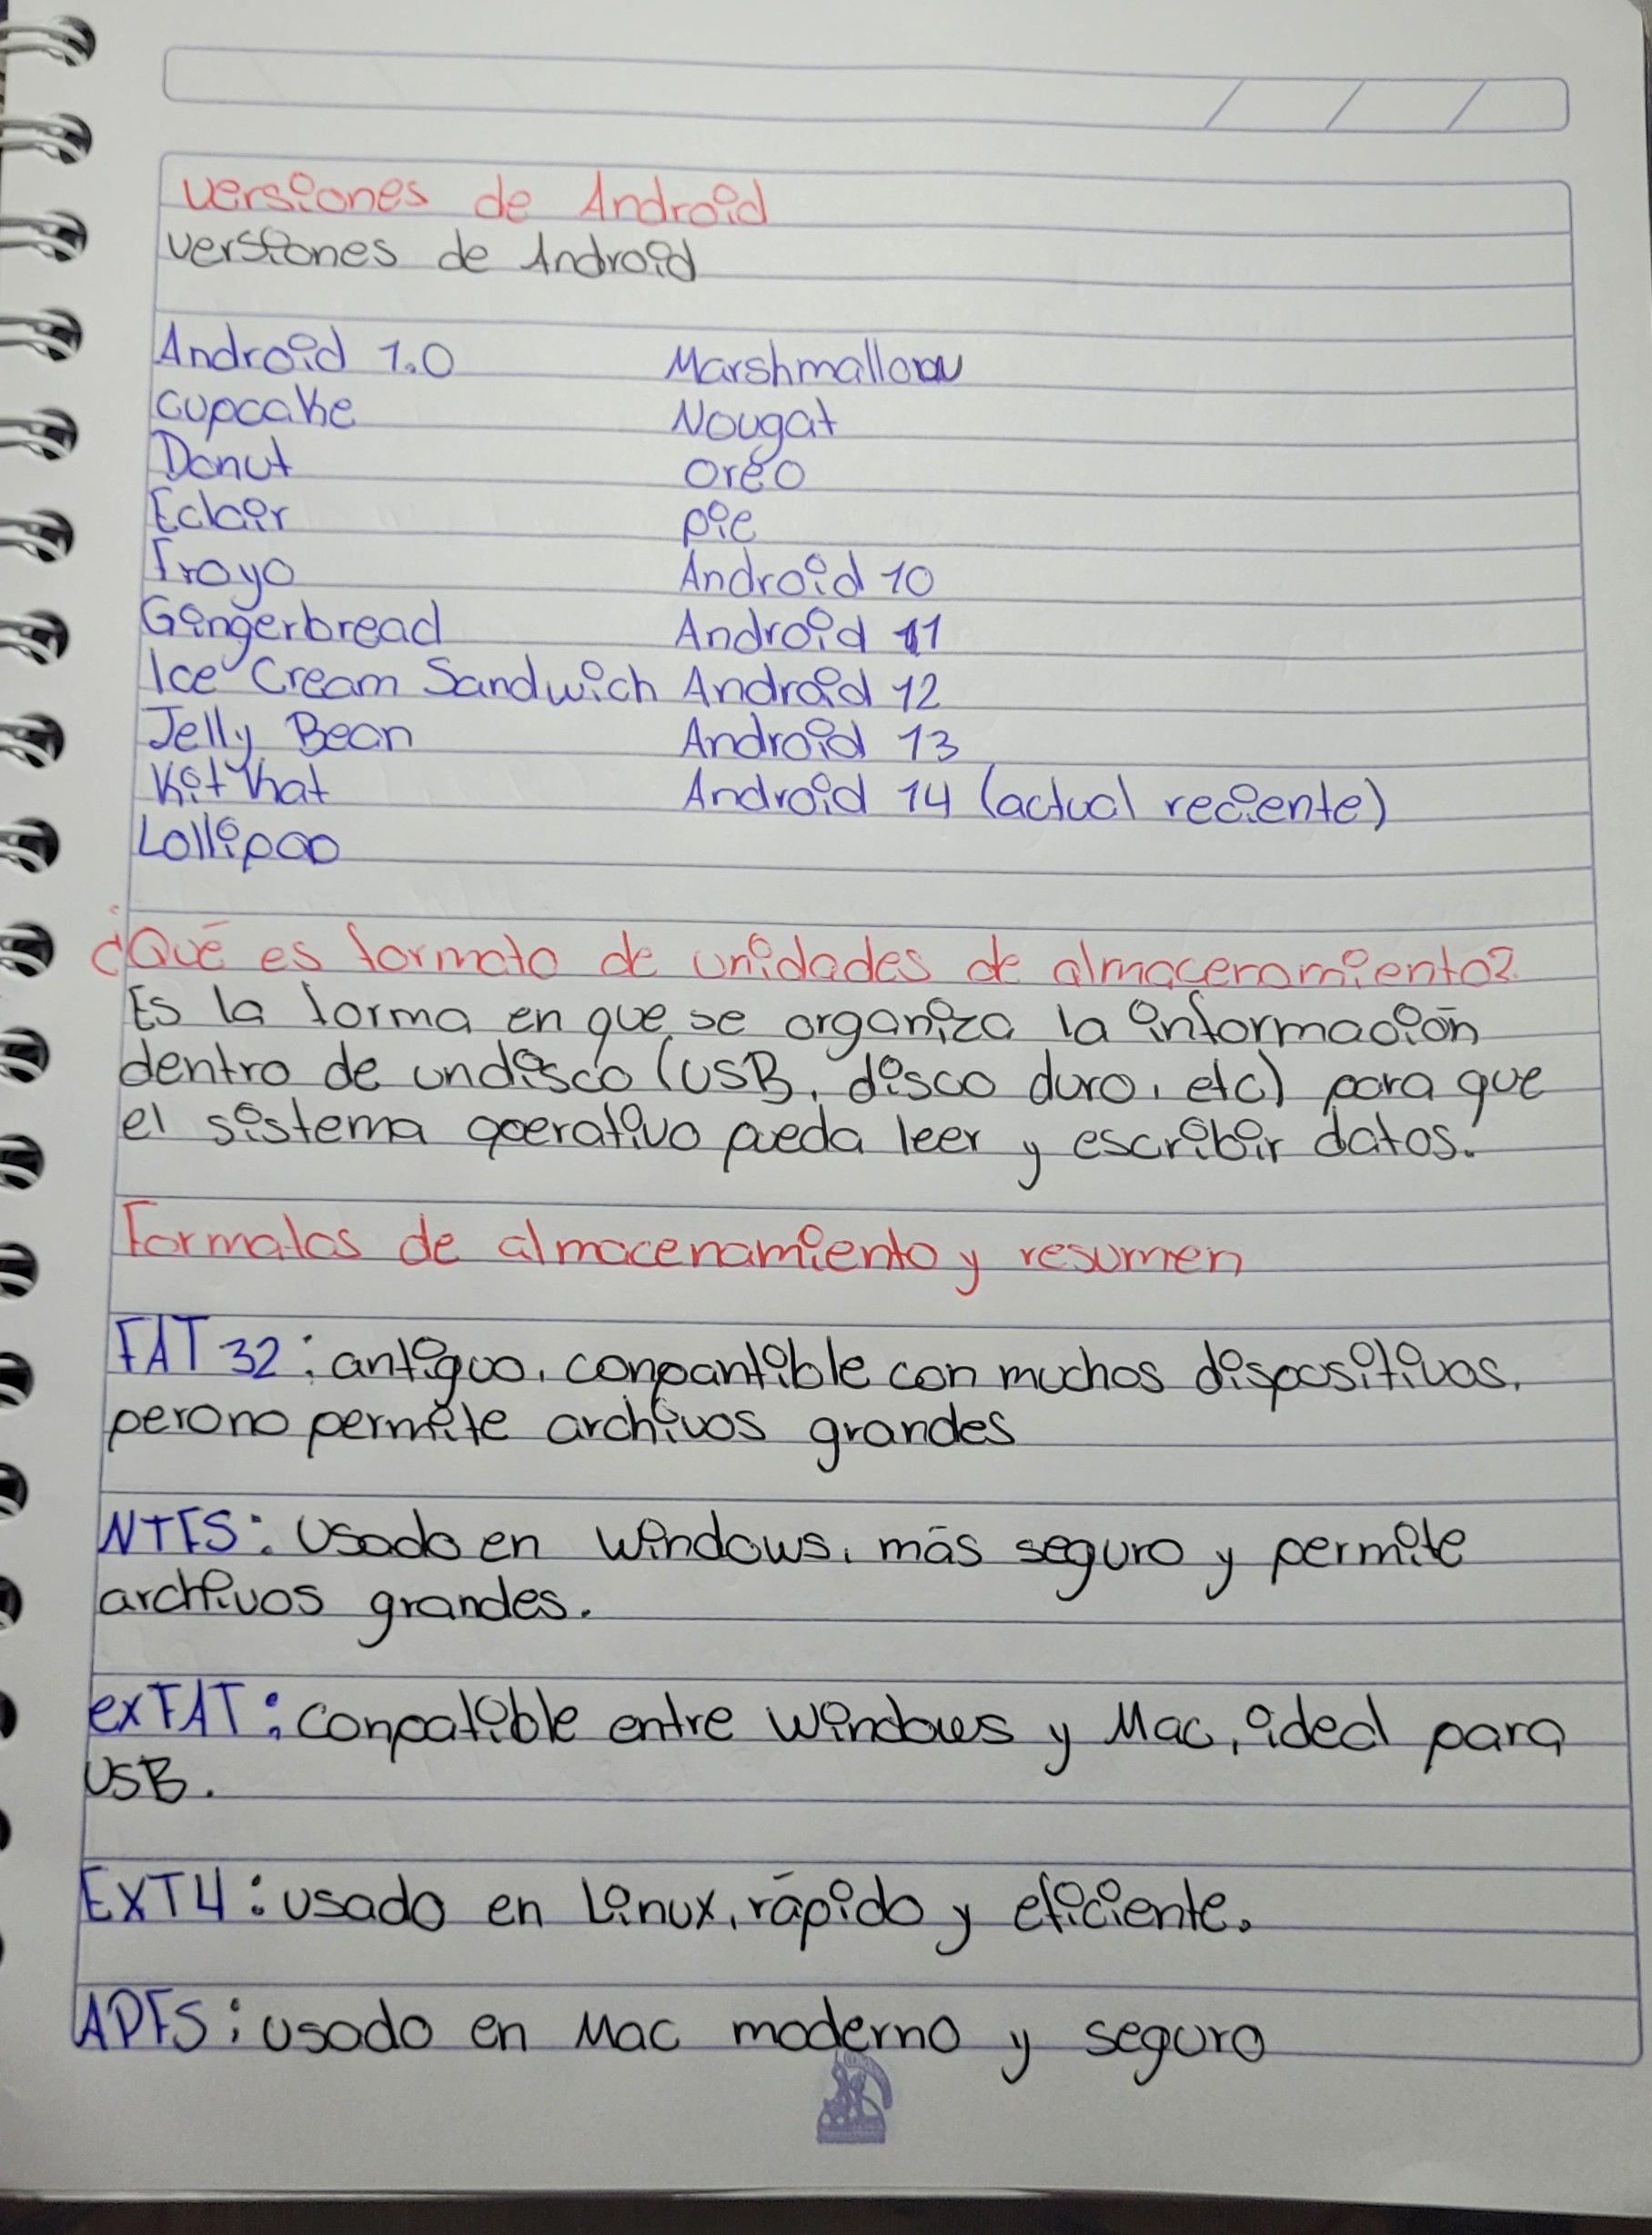 versiones de Android
versiones de Android
Android 1.0
cupcake
Donut
Eclair
Froyo
Gingerbread
Ice Cream Sandwich
Jelly Bean
Kit Khat
Lollipop
Marshmallow
Nougat
Oreo
pie
Android 10
Android 11
Android 12
Android 13
Android 14 (actual reciente)
¿Qué es formato de unidades de almaceramiento?
Es la forma en que se organiza la información
dentro de undisco (USB, disco duro, etc) para que
el sistema operativo pueda leer y escribir datos.
Formatos de almacenamiento y resumen
FAT 32: antiguo, conpantible con muchos dispositivos,
perono permite archivos grandes
NTFS: Usado en windows, más seguro y permite
archivos grandes.
exFAT: conpatible entre windows y Mac, ideal para
USB.
EXT4: usado en Linux, rápido y eficiente.
APFS: usado en Mac moderno y seguro